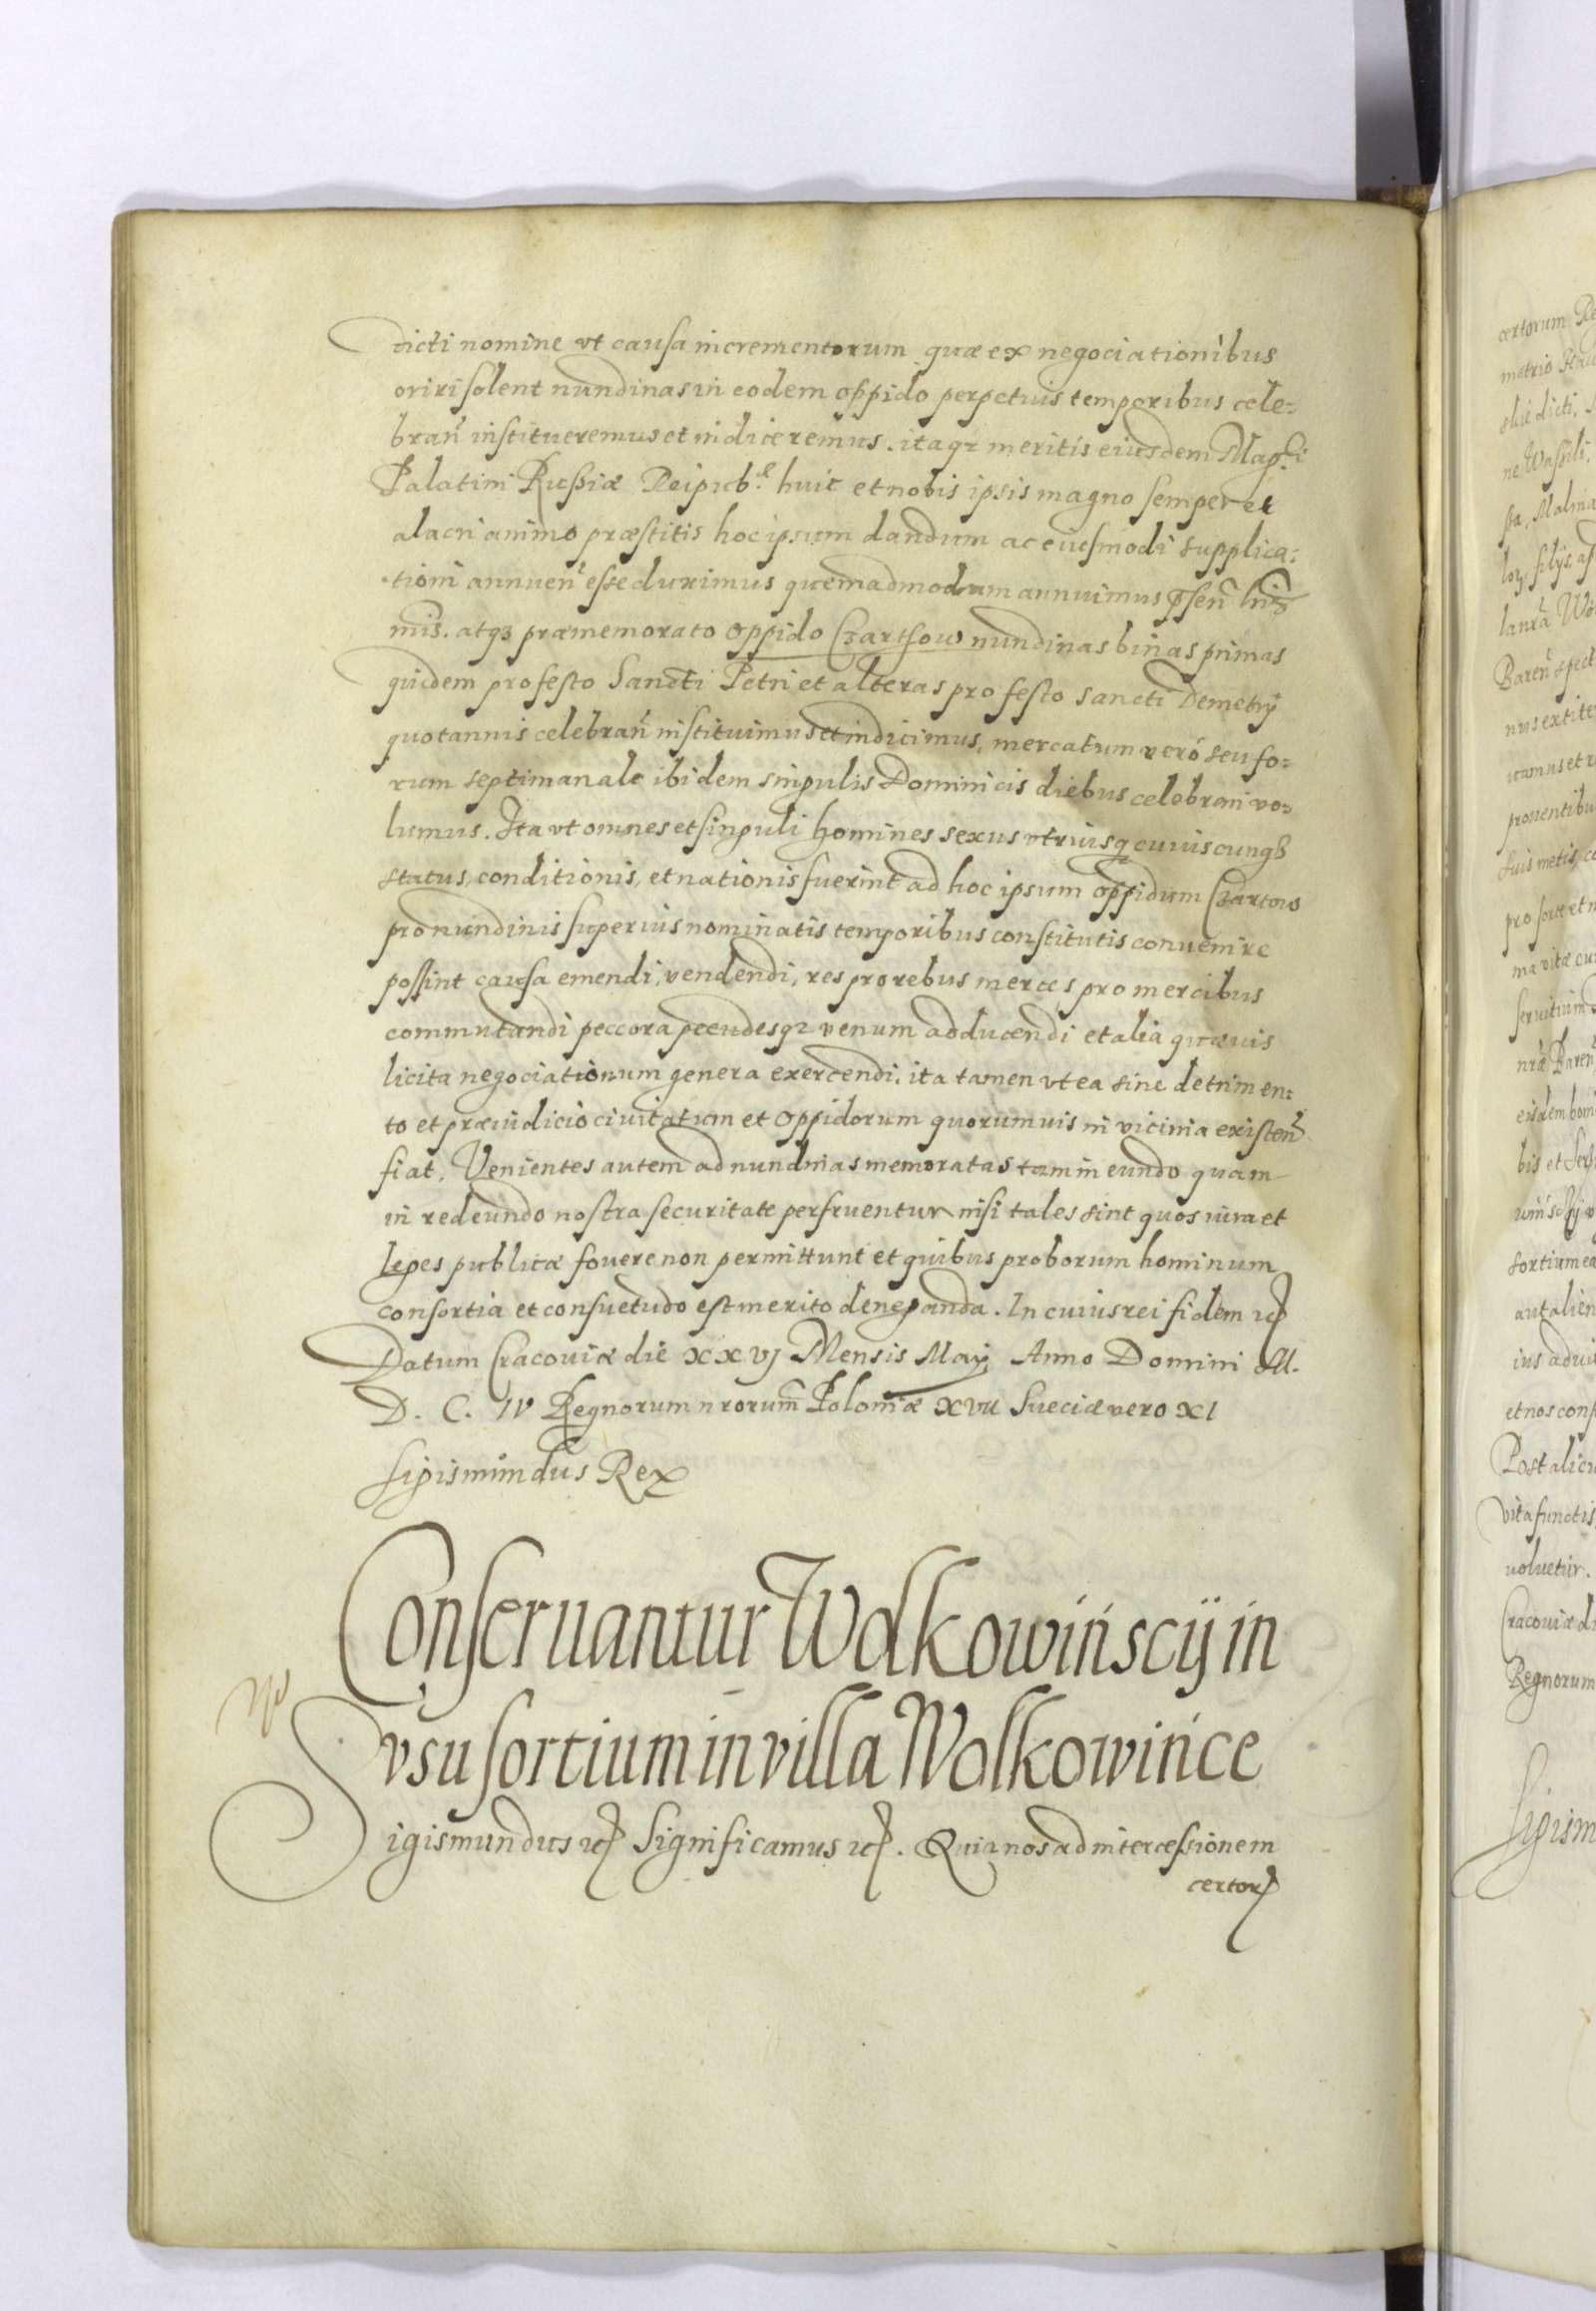 dicti nomine vt causa incrementorum quæ ex negociationibus
oriri solent nundinas in eodem oppido perpetuis temporibus cele:
brań institueremus et indiceremus. itaq meritis eiusdem Mag:ci
Palatini Russiæ Reipub:æ huic et nobis ipsis magno semper et
alacri animo præstitis hoc ipsum dandum ac eiusmodi supplica:
tioni annueń esse duximus quemadmodum annuimus
mis. atq præmemorato oppido Czartsow nundinas binas primas
quidem pro festo Sancti Petri et alteras pro festo sancti Demetrij
quotannis celebrań instituimus et indicimus, mercatum veró seu fo:
rum septimanale ibidem singulis Dominicis diebus celebrari vo:
lumus. Ita vt omnes et singuli homines sexus vtriusq cuiuscunq
status, conditionis, et nationis fuerint ad hoc ipsum oppidum Czartow
pro nundinis superius nominatis temporibus constitutis conuenire
possint causa emendi, vendendi, res pro rebus merces pro mercibus
commutandi peccora pecudesq venum adducendi et alia quæuis
licita negociationum genera exercendi, ita tamen vt ea sine detrimen:
to et præiudicio ciuitatum et oppidorum quorumuis in vicinia existeń
fiat. Venientes autem ad nundinas memoratas tam in eundo quam
in redeundo nostra securitate perfruentur nisi tales sint quos iura et
leges publicæ fouere non permittunt et quibus proborum hominum
consortia et consuetudo est merito deneganda. In cuius rei fidem etc
Datum Cracouiæ die XXVJ Mensis Maij Anno Domini M.
D. C. IV Regnorum nrorum Poloniæ XVII Sueciæ vero XI
Sigismundus Rex
Conseruantur Wolkowińscij in
vsu sortium in villa Wolkowińce
Sigismundus etc Significamus etc. Quia nos ad intercessionem
certor